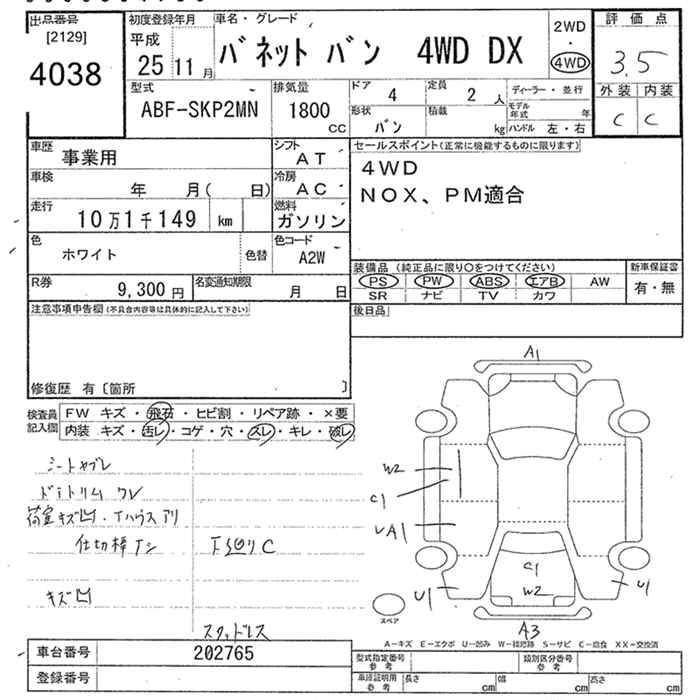 出品番号
[2129]
4038
初度登録年月
平成
25 11 月
車名・グレード
バネット バン 4WD DX
2WD
・
4WD
評価点
3.5
外装 内装
C C
型式
ABF-SKP2MN
排気量
1800
CC
ドア 4
定員 2 人
ディーラー・並行
形状 バン
積載 kg
モデル年式 年
ハンドル 左・右
車歴 事業用
シフト AT
セールスポイント(正常に機能するものに限ります)
4WD
NOX、PM適合
車検 年 月( 日)
冷房 AC
走行 10万1千149 km
燃料 ガソリン
色 ホワイト
色替
色コード A2W
装備品 (純正品に限り○をつけてください)
PS PW ABS エアB AW
SR ナビ TV カワ
新車保証書
有・無
R券 9,300 円
名変通知期限 月 日
後日品
注意事項申告欄(不具合内容等は具体的に記入して下さい)
修復歴 有〔箇所 〕
検査員記入欄
FW キズ・飛石・ヒビ割・リペア跡・×要
内装 キズ・汚レ・コゲ・穴・スレ・キレ・破レ
シートヤブレ
ドアトリム ワレ
荷室キズ凹・Tハウスアリ
仕切棒ナシ
下廻りC
キズ凹
スタッドレス
A1
W2
C1
UA1
C1
W2
U1
U1
A3
スペア
A-キズ E-エクボ U-凹み W-補修跡 S-サビ C-腐食 XX-交換済
車台番号 202765
登録番号
型式指定番号 参考
類別区分番号 参考
車庫証明用 参考
長さ cm 幅 cm 高さ cm